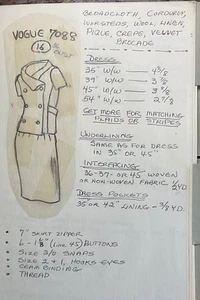 BROADCLOTH, CORDUROY,
WORSTEDS, WOOL, LINEN,
PIQUE, CREPE, VELVET
BROCADE
VOGUE 7088
16
DRESS
35" W/W — 4 3/8
39" W/W — 3 7/8
45" W/W — 3
54" W/W — 2 7/8
GET MORE FOR MATCHING
PLAIDS OR STRIPES
UNDERLINING
SAME AS FOR DRESS
IN 35" OR 45"
INTERFACING
36-37- OR 45 WOVEN
OR NON-WOVEN FABRIC
YD.
DRESS POCKETS
35 OR 42" LINING - 3/8 YD.
• 7" SKIRT ZIPPER
• 6 - 1 1/8" (LINE 45) BUTTONS
• SIZE 2/0 SNAPS
• SIZE 2 & 1, HOOKS EYES
• SEAM BINDING
• THREAD